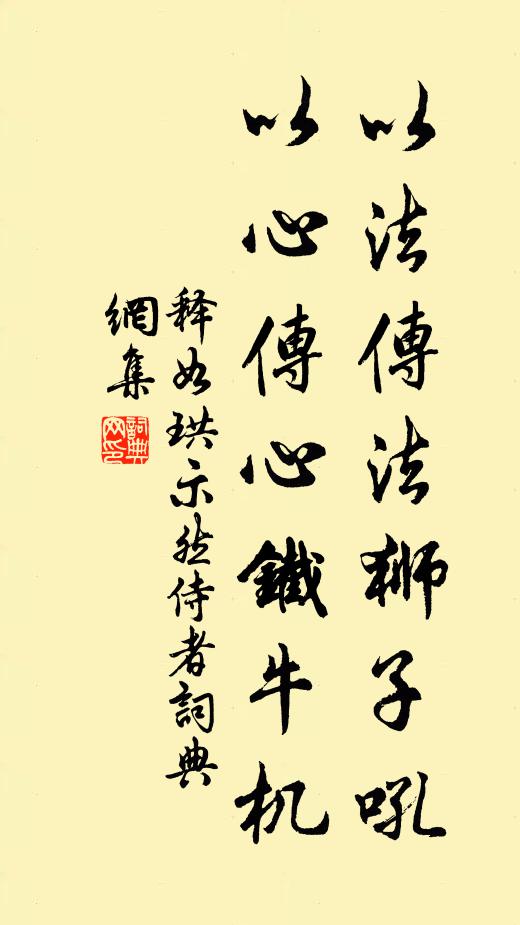 以法傳法獅子吼
以心傳心鐵牛机
释如珙示然侍者詞典
網集
詞典
网印